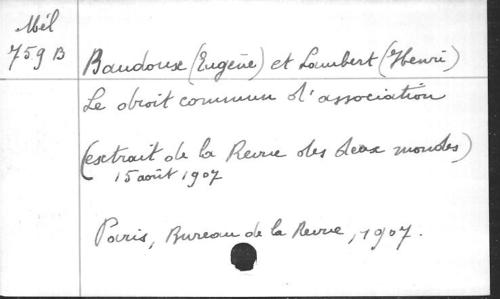 Mél
759 B
Baudoux (Eugène) et Lambert (Henri)
Le droit commun d'association
(extrait de la Revue des deux mondes)
15 août 1907
Paris, Bureau de la Revue, 1907.